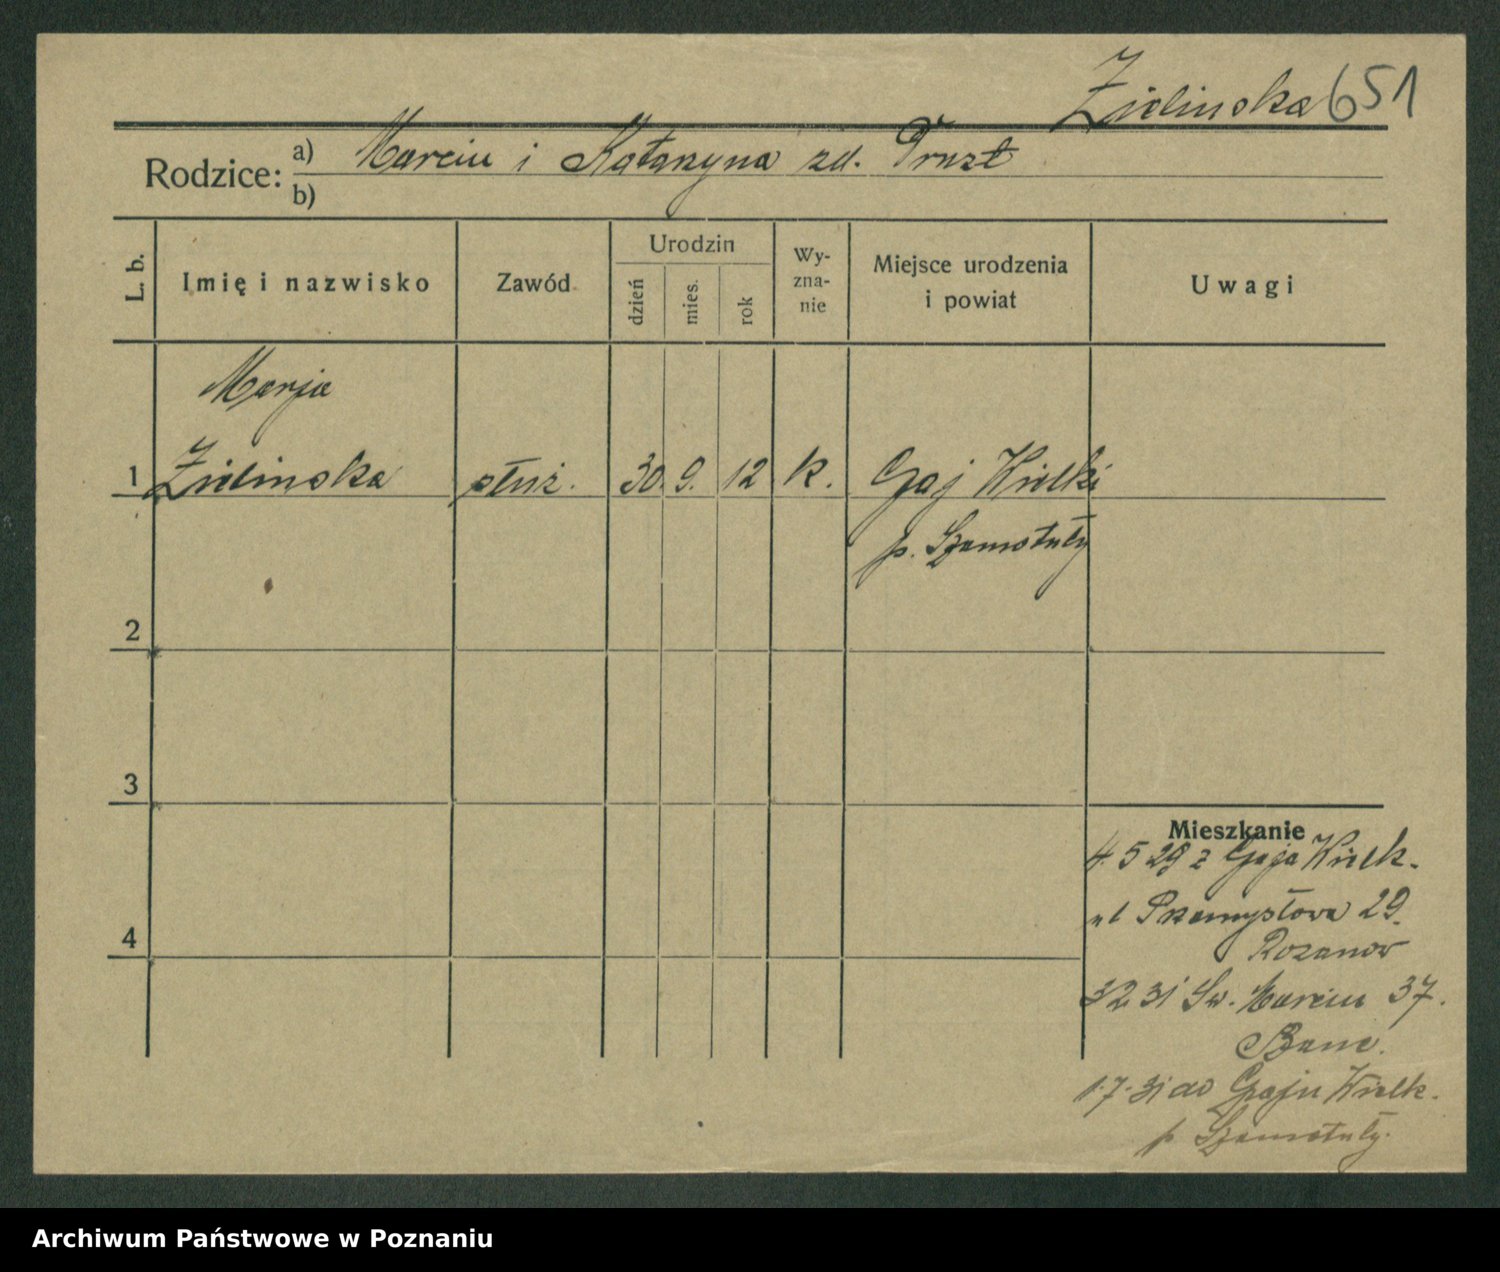 Zielinska 651
Rodzice: a) Marcin i Katarzyna zd. Pruzt
b)
L. b.
Imię i nazwisko
Zawód
Urodzin
dzień
mies.
rok
Wy-
zna-
nie
Miejsce urodzenia
i powiat
Uwagi
Marja
1 Zielinska służ. 30. 9. 12 k. Gaj Wielki
p. Szamotuły
2
3
Mieszkanie
4. 5 29 z Gaja Wielk.
ul Przemysłowa 29.
4
Rozanow
3 2 31 Sw. Marcin 37.
1.7.31 do Gaju Wielk.
p Szamotuły.
Archiwum Państwowe w Poznaniu